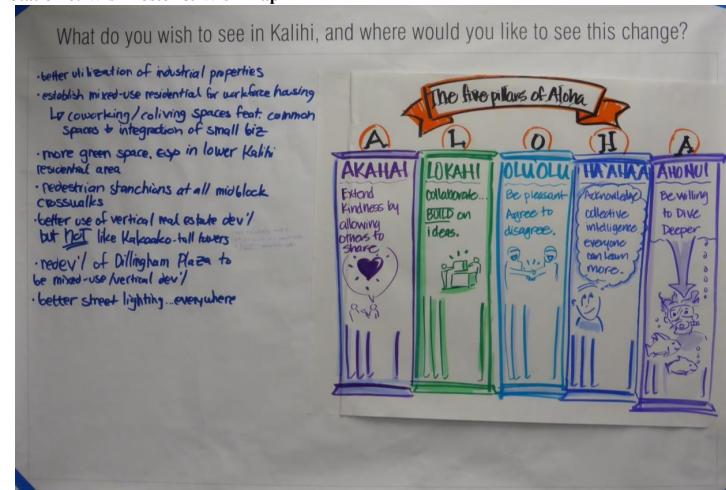 What do you wish to see in Kalihi, and where would you like to see this change?
·better utilization of industrial properties
·establish mixed-use residential for workforce housing
↳ coworking/coliving spaces feat. common
spaces + integration of small biz
·more green space, esp in lower Kalihi
residential area
·pedestrian stanchions at all midblock
crosswalks
·better use of vertical real estate dev'l
but NOT like Kakaako-tall towers
·redev'l of Dillingham Plaza to
be mixed-use/vertical dev'l
·better street lighting...everywhere
The five pillars of Aloha
A
AKAHAI
Extend
Kindness by
allowing
others to
share
L
LOKAHI
Collaborate...
BUILD on
ideas.
O
OLU'OLU
Be pleasant
Agree to
disagree.
H
HA'AHA'A
Acknowledge
collective
intelligence
everyone
can learn
more.
A
AHONUI
Be willing
to Dive
Deeper